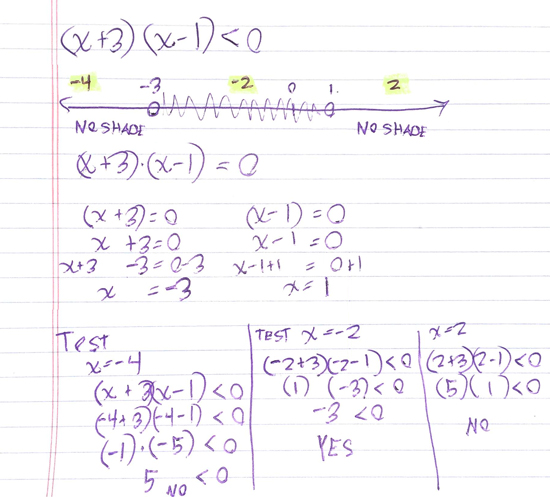 (x+3)(x-1)<0
-4 -3 -2 0 1 2
NO SHADE NO SHADE
(x+3)·(x-1)=0
(x+3)=0 (x-1)=0
x +3=0 x-1=0
x+3 -3=0-3 x-1+1 = 0+1
x =-3 x=1
Test
x=-4
(x+3)(x-1)<0
(-4+3)(-4-1)<0
(-1)·(-5)<0
5 NO <0
TEST x=-2
(-2+3)(-2-1)<0
(1) (-3)<0
-3<0
YES
x=2
(2+3)(2-1)<0
(5)(1)<0
NO